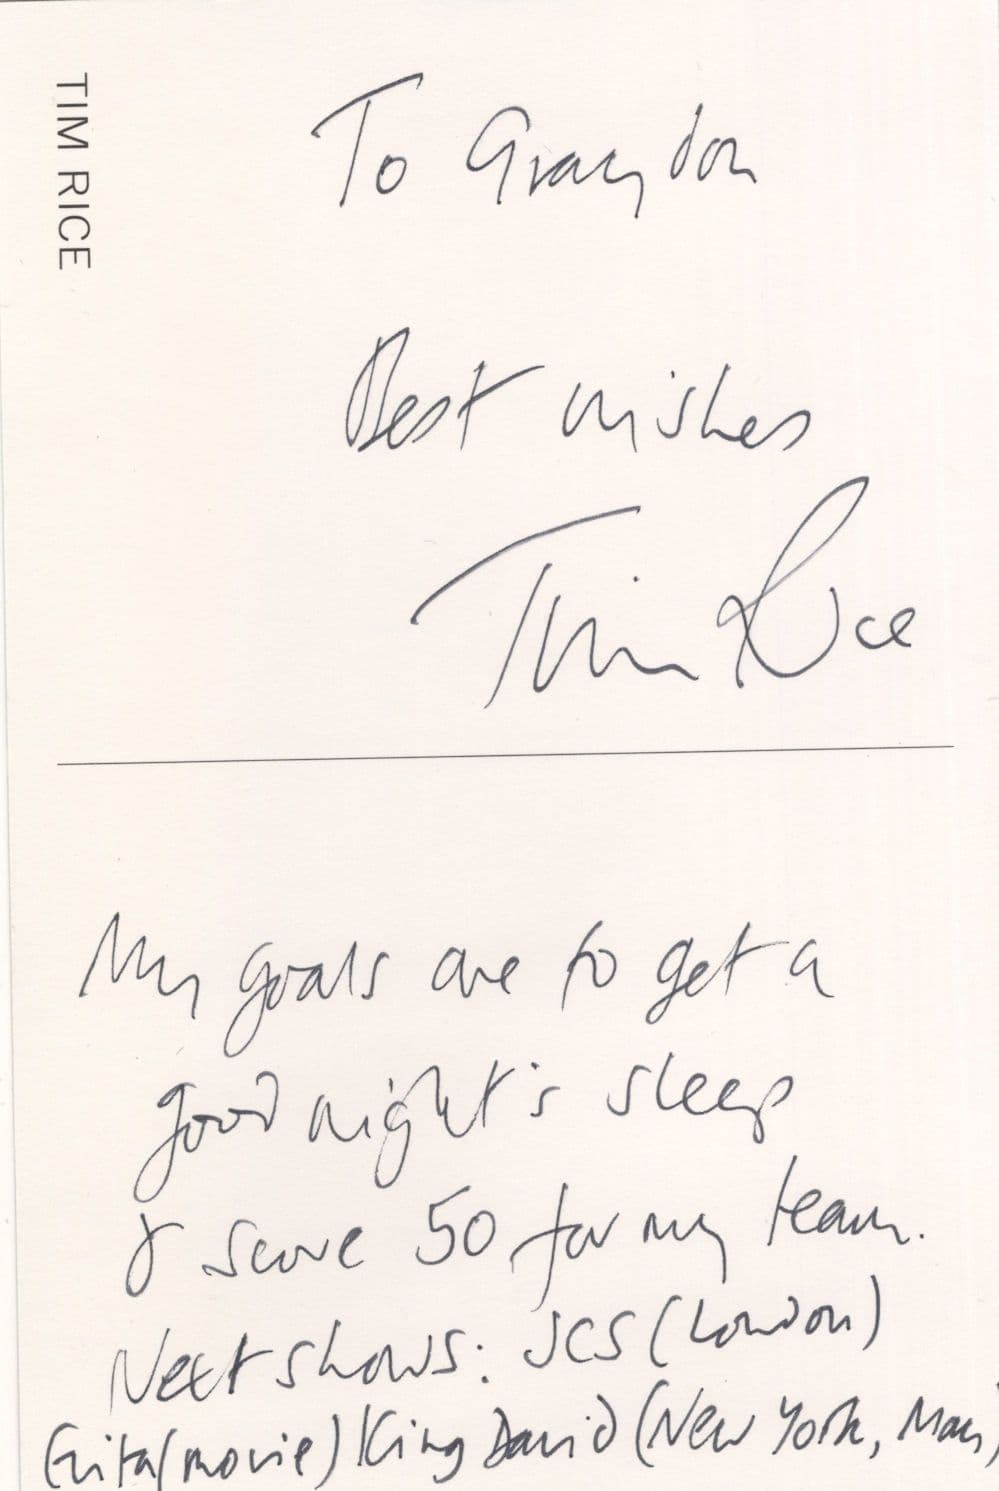 TIM RICE
To Graydon
Best wishes
Tim Rice
My goals are to get a
good night's sleep
& score 50 for my team.
Next shows: JCS (London)
Evita (movie) King David (New York, May)